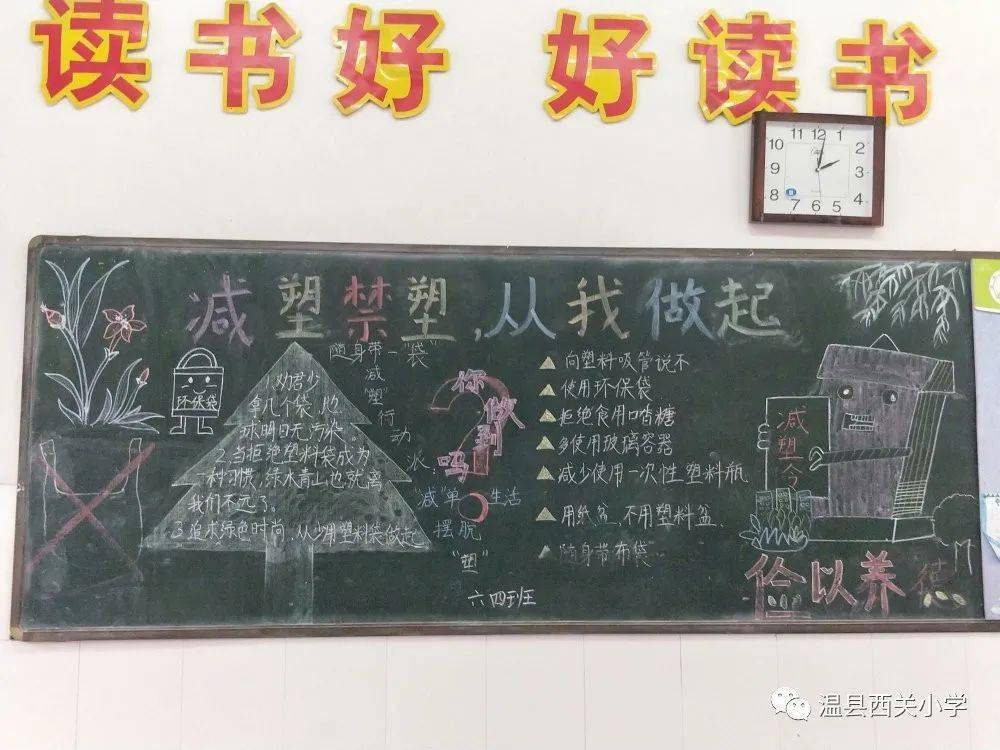 读书好 好读书
11 12 1
10 2
9 3
8 4
7 6 5
减塑禁塑,从我做起
环保袋
1.劝君少
拿几个袋,地
球明日无污染
2.当拒绝塑料袋成为
一种习惯,绿水青山也就离
我们不远了。
3.追求绿色时尚,从少用塑料袋做起
随身带一"袋"
减
"塑"
行
动
派!
你做到吗?
"减"单生活
摆脱
"塑"
六四班
向塑料吸管说不
使用环保袋
拒绝食用口香糖
多使用玻璃容器
减少使用一次性塑料瓶
用纸盆,不用塑料盆.
随身带布袋
减塑令
俭以养德
温县西关小学